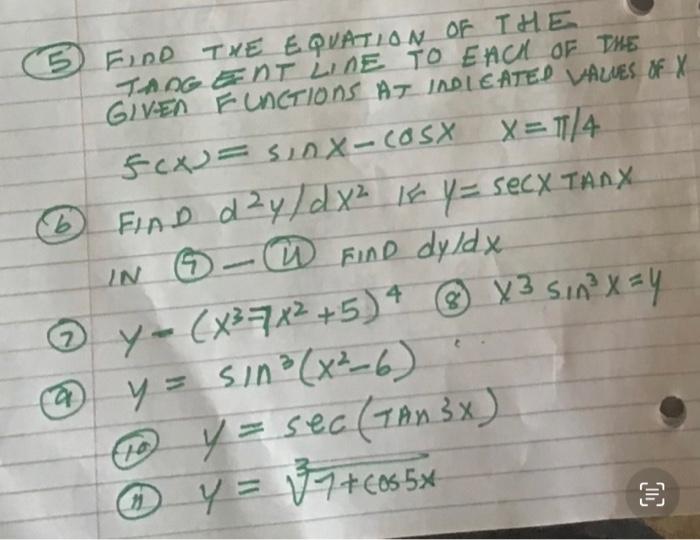 5 FIND THE EQUATION OF THE
TANGENT LINE TO EACH OF THE
GIVEN FUNCTIONS AT INDICATED VALUES OF X
f(x) = sinx - cosx x = π/4
6 FIND d²y/dx² if y = secx TANX
IN 7 - 11 FIND dy/dx
7 y = (x³ - 7x² + 5)⁴ 8 x³ sin³x = y
9 y = sin³(x² - 6)
10 y = sec(TAN 3x)
11 y = ∛7 + cos 5x